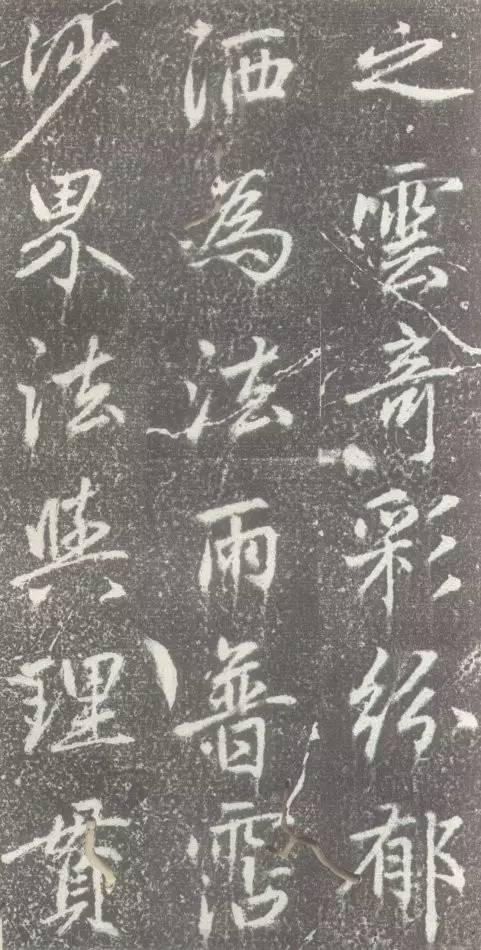 之雲奇彩紛郁
洒為法雨普霑
沙界法與理貫